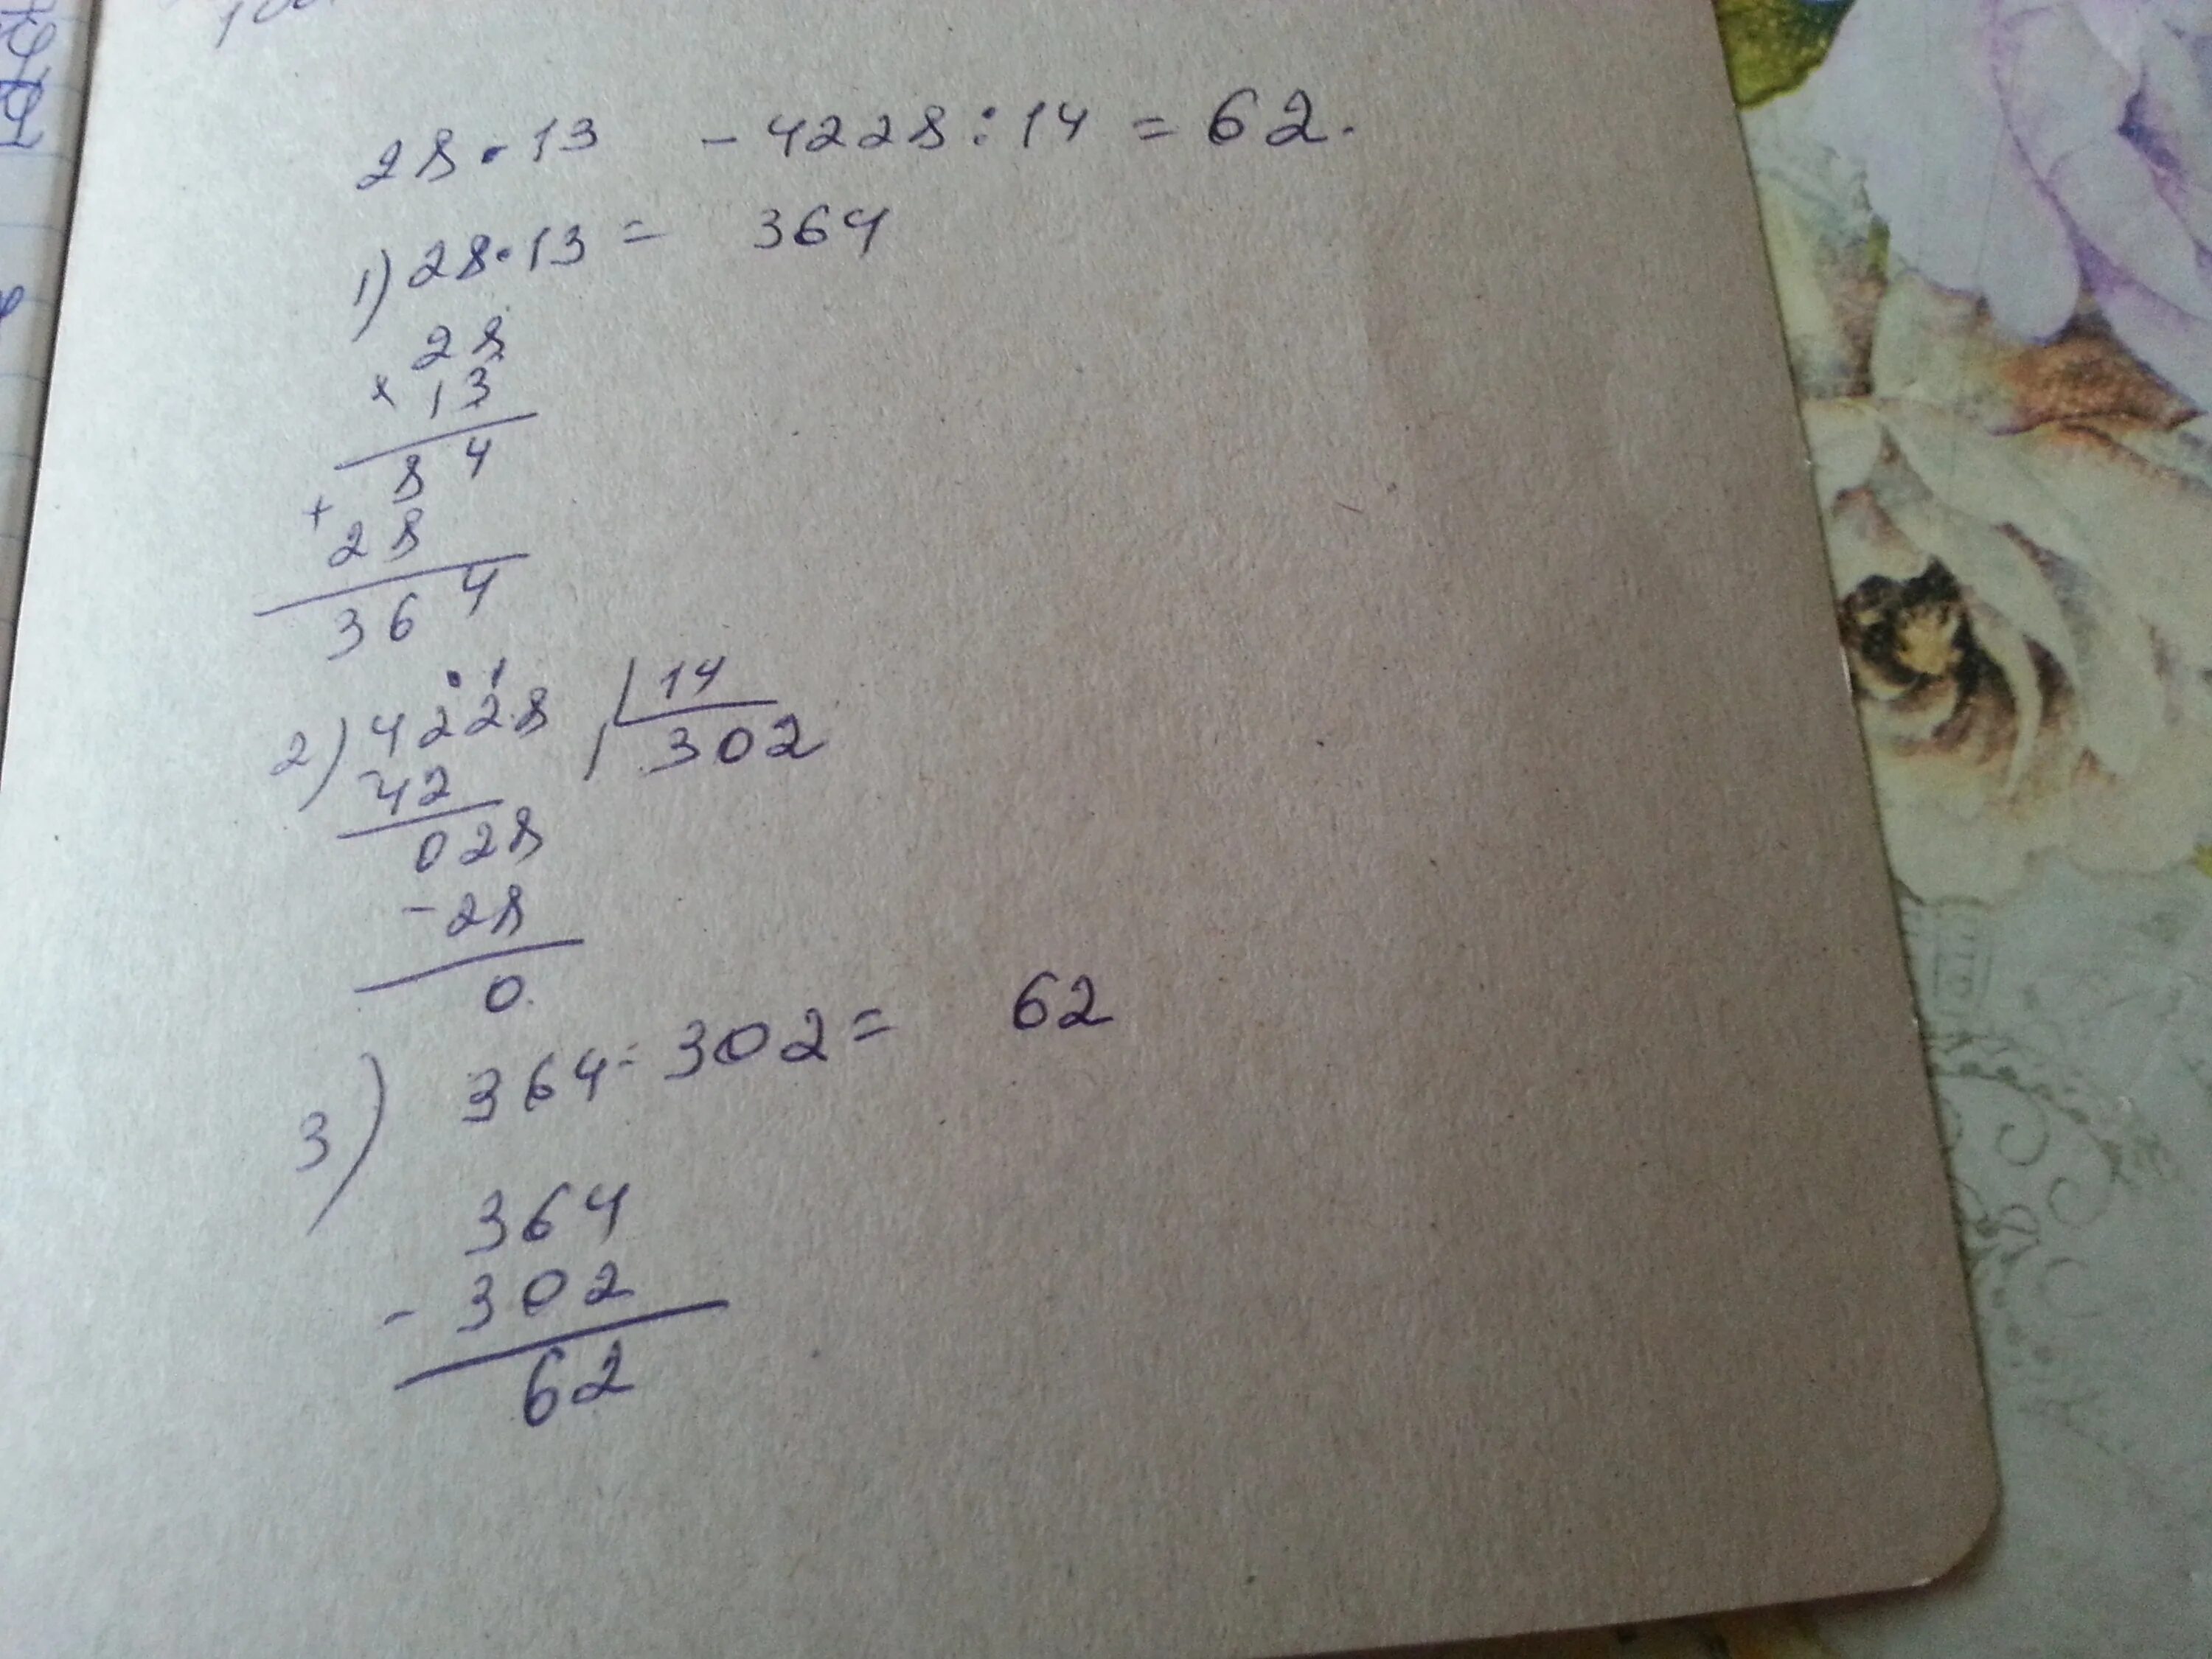 28 · 13 - 4228 : 14 = 62.
1) 28 · 13 = 364
28
× 13
84
+
28
364
2) 4228 14
42 302
028
- 28
0.
3) 364 - 302 = 62
364
- 302
62